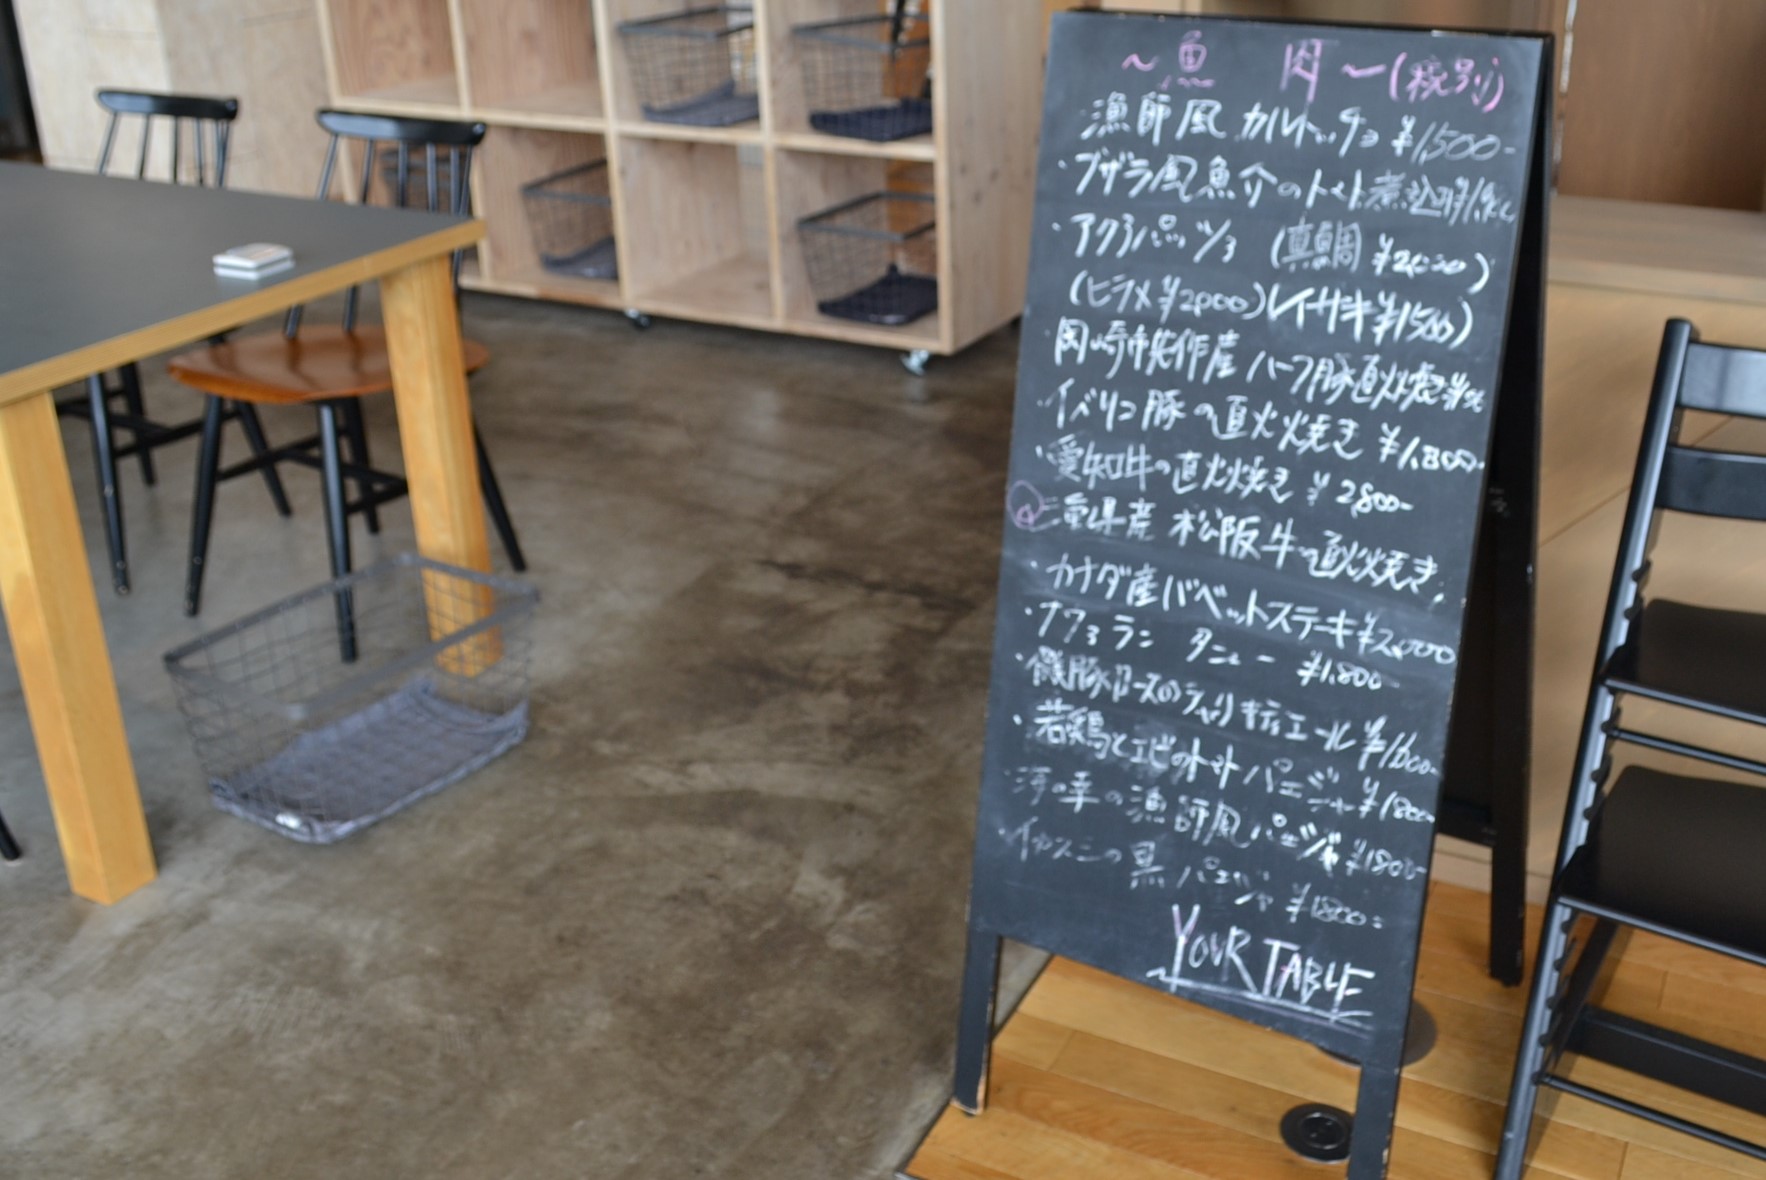 ~魚 肉~(税別)
漁師風 カルトッチョ ¥1,500-
・ブザラ風魚介のトマト煮込み
・アクアパッツァ (真鯛 ¥2,000)
(ヒラメ¥2,000)(イサキ¥1,500)
岡崎市 産 ハーフ豚直火焼き
・イベリコ豚の直火焼き ¥1,800-
・愛知牛の直火焼き ¥2,800-
三重県産 松阪牛の直火焼き
・カナダ産バベットステーキ¥2,000
・フワラン タニュー ¥1,800-
・豚ロースのシャリキティエール ¥1,600-
・若鶏とエビのトマトパエジャ ¥1800-
海の幸の漁師風パエジャ ¥1800-
・イカスミの黒パエジャ ¥1800-
~YOUR TABLE